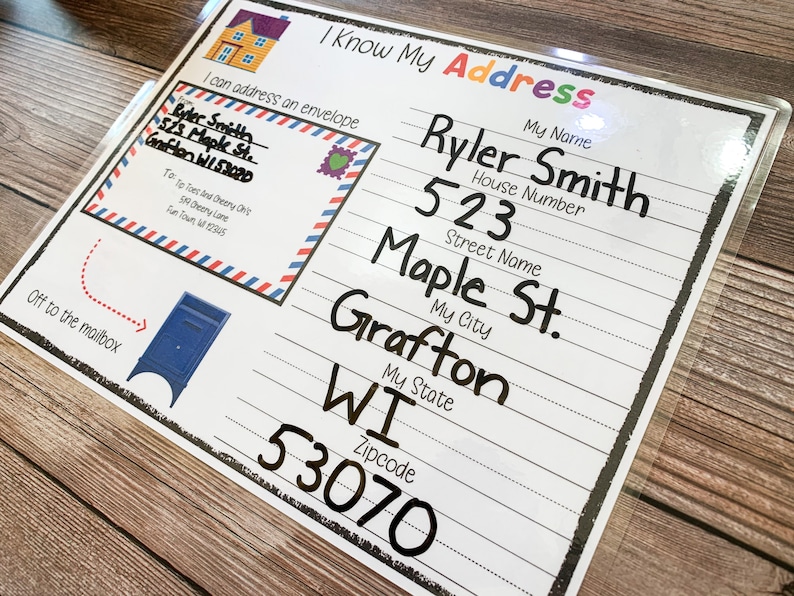 I Know My Address
I can address an envelope
From:
Ryler Smith
523 Maple St.
Grafton WI 53070
To: Tip Toes And Cheery Oh's
519 Cheery Lane
Fun Town, WI 12345
Off to the mailbox
My Name
Ryler Smith
House Number
523
Street Name
Maple St.
My City
Grafton
My State
WI
Zipcode
53070